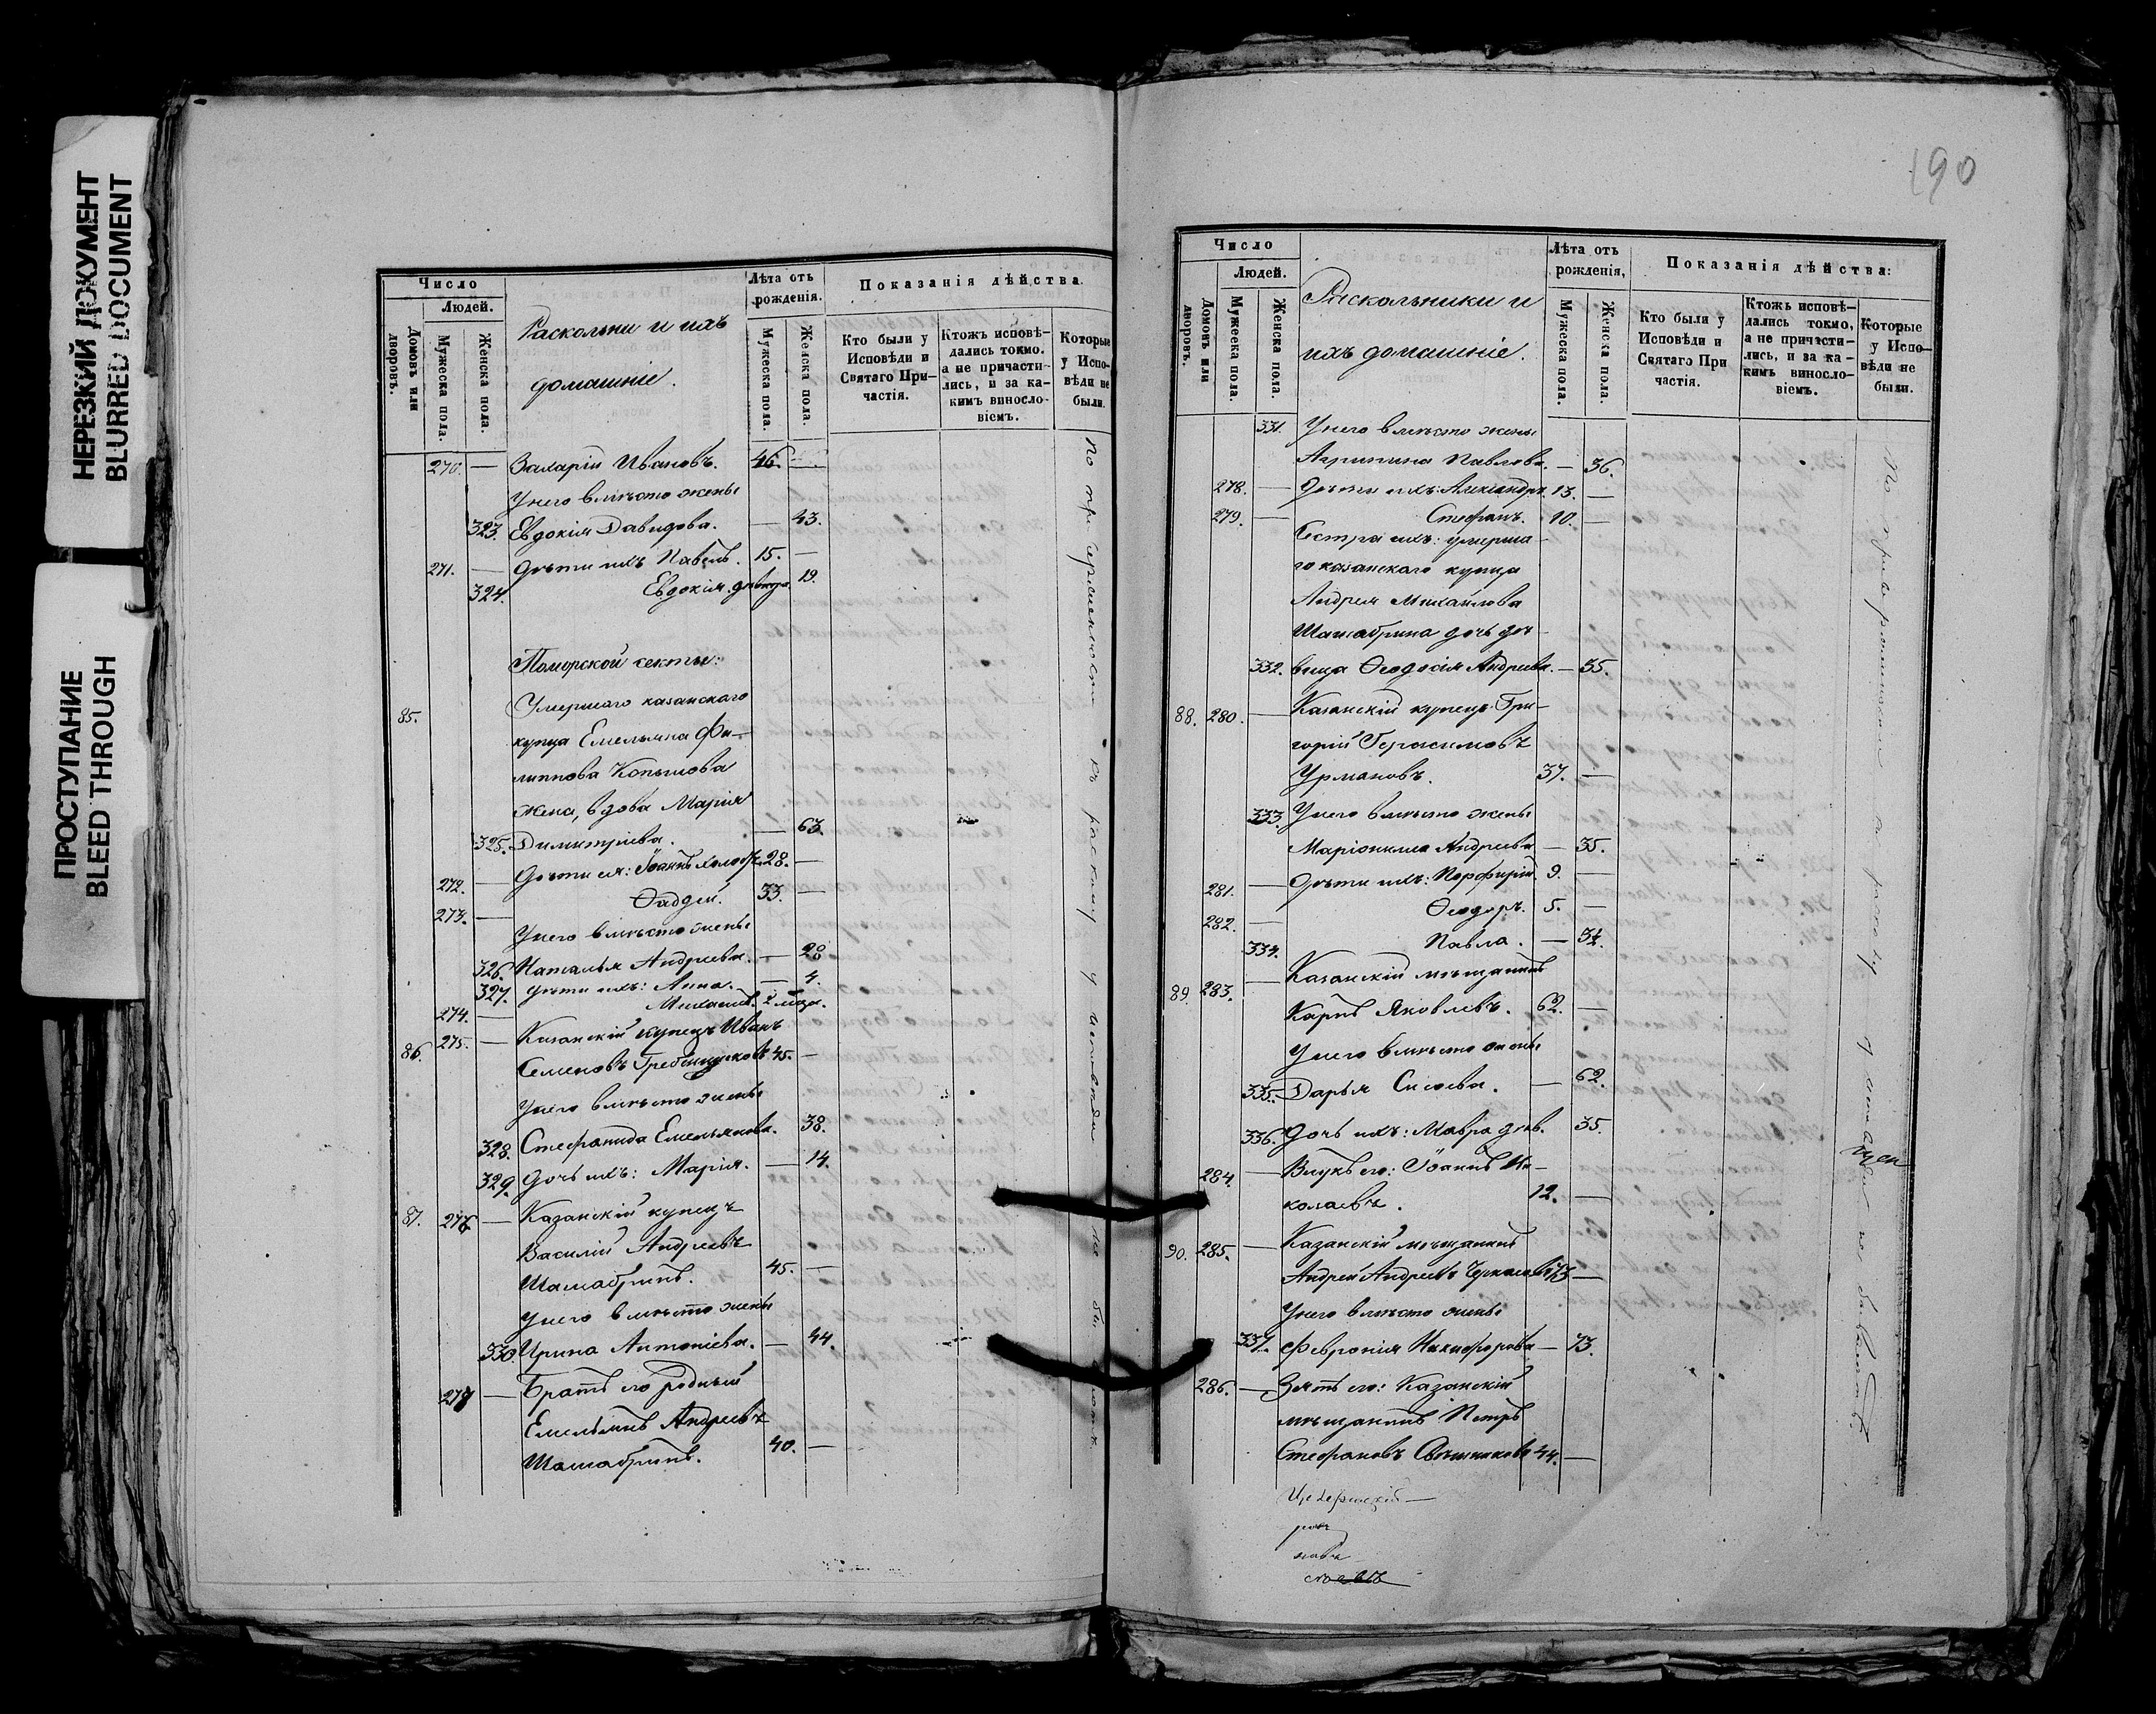 НЕРЕЗКИЙ ДОКУМЕНТ
BLURRED DOCUMENT
ПРОСТУПАНИЕ
BLEED THROUGH
Число
Людей.
Домовъ или дворовъ.
Мужеска пола.
Женска пола.
Раскольни и ихъ
домашніе.
Лѣта отъ рожденія.
Мужеска пола.
Женска пола.
Показанія дѣйства.
Кто были у Исповѣди и Святаго Причастія.
Ктожъ исповѣ-дались токмо. а не причасти-лись, и за ка-кимъ винослo-віемъ.
Которые у Испо-вѣди не были.
270. — Захарій Ивановъ. 46. —
У него вмѣсто жены
323. Евдокія Давидова. — 43.
271. — Дѣти ихъ Павелъ. 15. —
324. Евдокія девица 19.
Поморской секты:
85. Умершаго казанскаго
купца Емельяна Фи-
липпова Копылова
жена, вдова Марія
325. Димитріева. — 63.
272. — Дѣти ея: Іоаннъ холост. 28. —
273. — Фаддей. 33. —
У него вмѣсто жены
326. Наталья Андреева. — 28
327. Дѣти ихъ: Анна. — 4.
274. — Михаилъ. 2 мѣся.
86. 275. — Казанскій купецъ Иванъ
Семеновъ Гребенщиковъ 45. —
У него вмѣсто жены
328. Стефанида Емельянова. 38.
329. Дочь ихъ: Марія. — 14.
87. 276 — Казанскій купецъ
Василій Андреевъ
Шамабринъ. 45. —
У него вмѣсто жены
330. Ирина Антоніева. — 44.
277 — Братъ его родный
Емельянъ Андреевъ
Шамабринъ. 40. —
190
Число
Людей.
Домовъ или дворовъ.
Мужеска пола.
Женска пола.
Раскольники и
ихъ домашніе.
Лѣта отъ рожденія,
Мужеска пола.
Женска пола.
Показанія дѣйства:
Кто были у Исповѣди и Святаго При частія.
Ктожъ исповѣ-дались токмо, а не причасти-лись, и за ка-кимъ винослo-віемъ.
Которые у Испо-вѣди не были.
331. У него вмѣсто жены
Агрипина Павлова. — 36.
278. — Дѣти ихъ: Александръ. 13. —
279. — Стефанъ. 10. —
Сестра ихъ: умерша-
го казанскаго купца
Андрея Михайлова
Шамабрина дочь дѣ-
332. вица Ѳеодосія Андреева. — 55.
88. 280. — Казанскій купецъ Гри-
горій Герасимовъ
Урмановъ. 37. —
333. У него вмѣсто жены
Маріонилла Андреева — 35.
281. — Дѣти ихъ: Порфирій. 9. —
282. — Ѳеодоръ. 5. —
334. Павла. — 3½.
89. 283. — Казанскій мѣщанинъ
Карпъ Яковлевъ. 62. —
У него вмѣсто жены
335. Дарья Сысоева. — 62.
336. Дочь ихъ: Мавра дѣв. 35.
284. — Внукъ его: Іоаннъ Ни-
колаевъ. 12. —
90. 285. — Казанскій мѣщанинъ
Андрей Андреевъ 73 —
У него вмѣсто жены
337. Февронія Никифорова — 73.
286. — Зять его: Казанскій
мѣщанинъ Петръ
Стефановъ 44. —